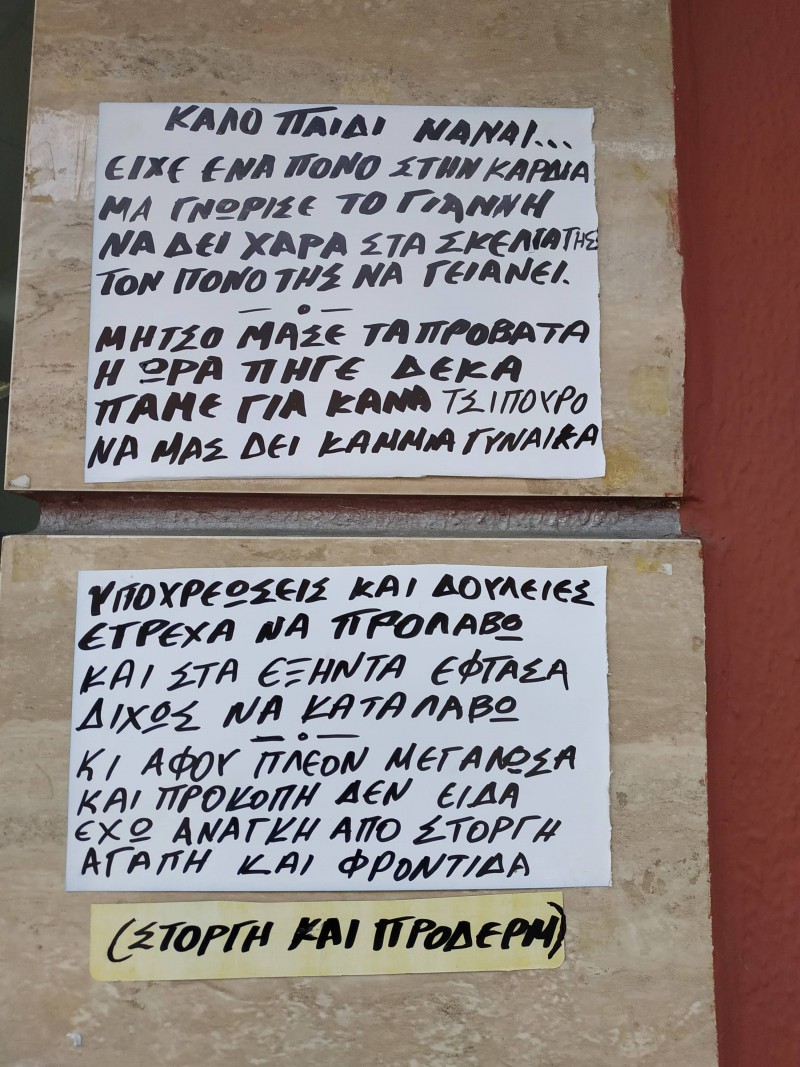 ΚΑΛΟ ΠΑΙΔΙ ΝΑΝΑΙ...
ΕΙΧΕ ΕΝΑ ΠΟΝΟ ΣΤΗΝ ΚΑΡΔΙΑ
ΜΑ ΓΝΩΡΙΣΕ ΤΟ ΓΙΑΝΝΗ
ΝΑ ΔΕΙ ΧΑΡΑ ΣΤΑ ΣΚΕΛΙΑ ΤΗΣ
ΤΟΝ ΠΟΝΟ ΤΗΣ ΝΑ ΓΕΙΑΝΕΙ.
—ο—
ΜΗΤΣΟ ΜΑΣΕ ΤΑ ΠΡΟΒΑΤΑ
Η ΩΡΑ ΠΗΓΕ ΔΕΚΑ
ΠΑΜΕ ΓΙΑ ΚΑΝΑ ΤΣΙΠΟΥΡΟ
ΝΑ ΜΑΣ ΔΕΙ ΚΑΜΜΙΑ ΓΥΝΑΙΚΑ
ΥΠΟΧΡΕΩΣΕΙΣ ΚΑΙ ΔΟΥΛΕΙΕΣ
ΕΤΡΕΧΑ ΝΑ ΠΡΟΛΑΒΩ
ΚΑΙ ΣΤΑ ΕΞΗΝΤΑ ΕΦΤΑΣΑ
ΔΙΧΩΣ ΝΑ ΚΑΤΑΛΑΒΩ
—ο—
ΚΙ ΑΦΟΥ ΠΛΕΟΝ ΜΕΓΑΛΩΣΑ
ΚΑΙ ΠΡΟΚΟΠΗ ΔΕΝ ΕΙΔΑ
ΕΧΩ ΑΝΑΓΚΗ ΑΠΟ ΣΤΟΡΓΗ
ΑΓΑΠΗ ΚΑΙ ΦΡΟΝΤΙΔΑ
(ΣΤΟΡΓΗ ΚΑΙ ΠΡΟΔΕΡΜ)